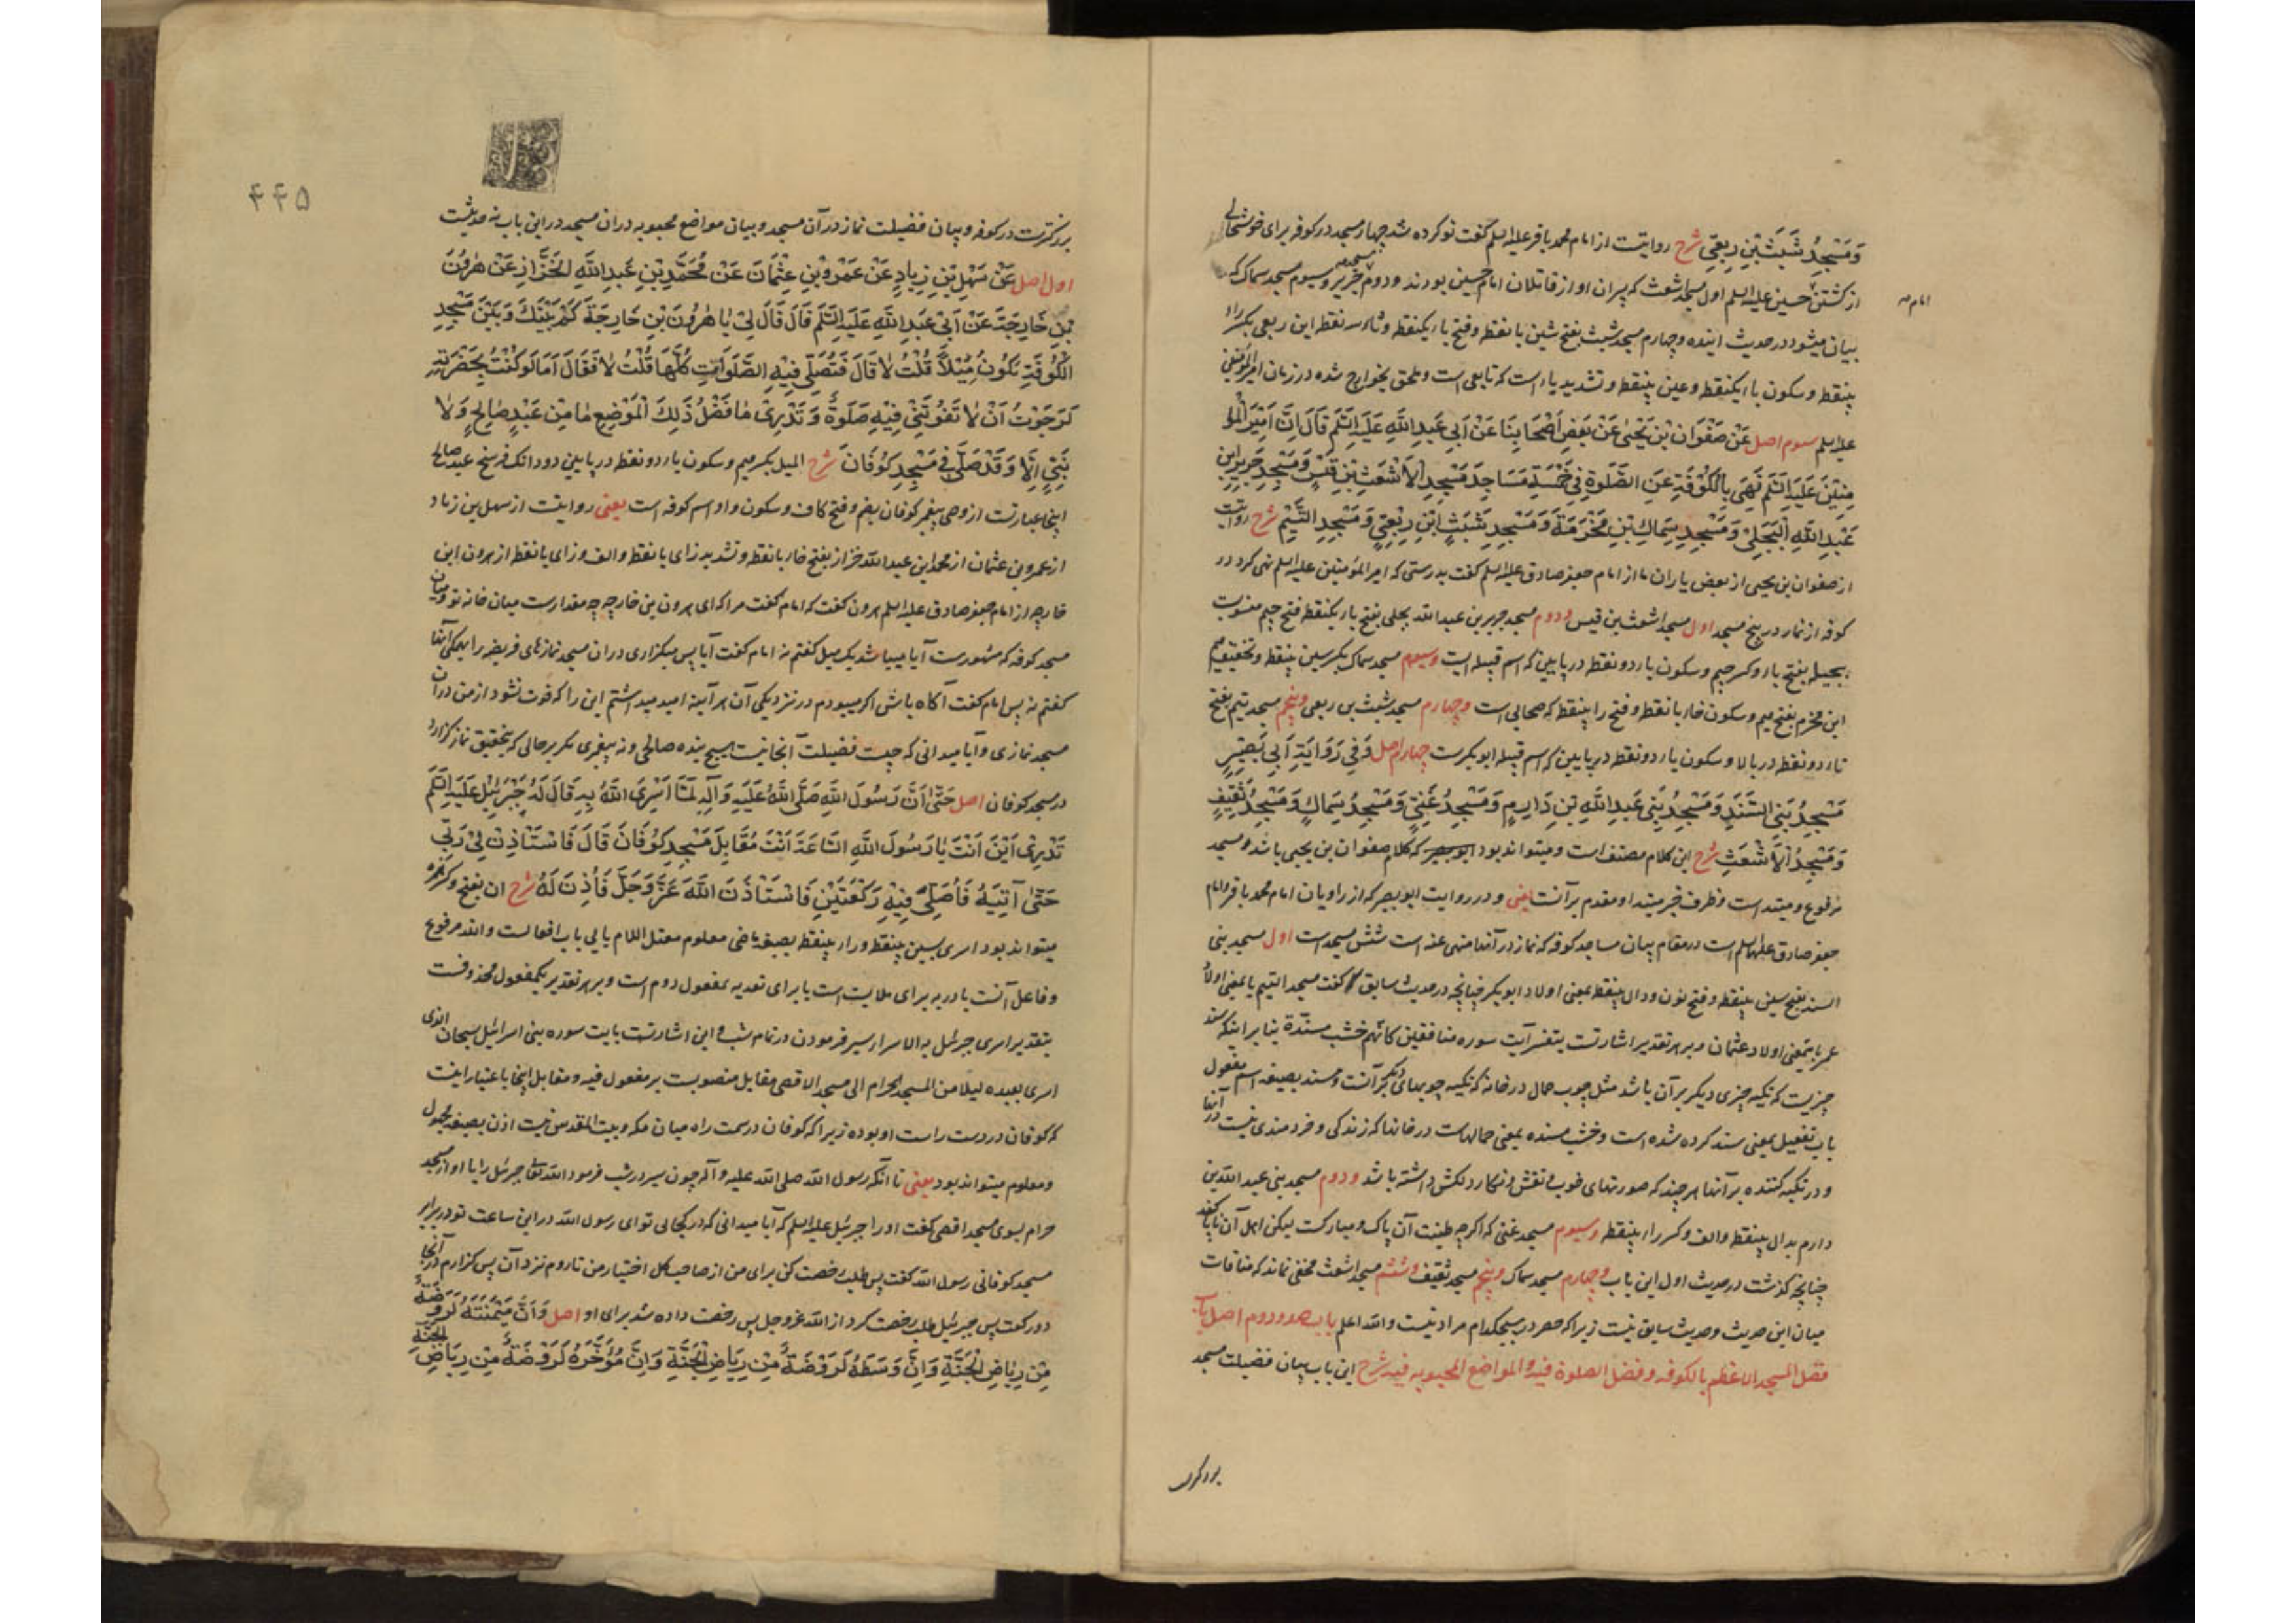 وَمَسْجِدُ شَبَثِ بْنِ رِبْعِيٍّ شرح روایتست از امام محمد باقر علیه السلم گفت نو کرده شد چهار مسجد در کوفه برای خوشحالی
از کشتن حسین علیه السلم اول مسجد اشعث که پسران او از قاتلان امام حسین بودند و دوم مسجد جریر و سیوم مسجد سماک که
امام
بیان میشود در حدیث اینده و چهارم مسجد شبث بفتح شین با نقطه و فتح باء یکنقطه و ثاء سه نقطه ابن ربعی بکسر راء
بینقطه و سکون باء یکنقطه و عین بینقطه و تشدید یاء است که تابعی است و ملحق بخوارج شده در زمان امیر المؤمنین
علیه السلم سیوم اصل عَنْ صَفْوَانَ بْنِ يَحْيَىٰ عَنْ بَعْضِ أَصْحَابِنَا عَنْ أَبِي عَبْدِ اللَّهِ عَلَيْهِ السَّلَم قَالَ إِنَّ أَمِيرَ الْمُؤ
مِنِينَ عَلَيْهِ السَّلَم نَهَى بِالْكُوفَةِ عَنِ الصَّلَوةِ فِي خَمْسَةِ مَسَاجِدَ مَسْجِدِ الْأَشْعَثِ بْنِ قَيْسٍ وَمَسْجِدِ جَرِيرِ ابْنِ
عَبْدِ اللَّهِ الْبَجَلِيِّ وَمَسْجِدِ سِمَاكِ بْنِ مَخْرَمَةَ وَمَسْجِدِ شَبَثِ ابْنِ رِبْعِيٍّ وَمَسْجِدِ التَّيْمِ شرح روایتست
از صفوان بن یحیی از بعض یاران ما از امام جعفر صادق علیه السلم گفت بدرستی که امیر المؤمنین علیه السلم نهی کرد در
کوفه از نماز در پنج مسجد اول مسجد اشعث بن قیس و دوم مسجد جریر بن عبد الله بجلی بفتح باء یکنقطه فتح جیم منسوبست
ببجیله بفتح باء و کسر جیم و سکون یاء دو نقطه در پایین که اسم قبیله ایست وسیوم مسجد سماک بکسر سین بینقطه و تخفیف میم
ابن مخرم بفتح میم و سکون خاء با نقطه و فتح را بینقطه که صحابی است وچهارم مسجد شبث بن ربعی وپنجم مسجد تیم بفتح
تاء دو نقطه در بالا و سکون یاء دو نقطه در پایین که اسم قبیله ابو بکرست چهارم اصل وَفِي رِوَايَةِ أَبِي بَصِيرٍ
مَسْجِدُ بَنِي السَّنَدِ وَمَسْجِدُ بَنِي عَبْدِ اللَّهِ بْنِ دَارِمٍ وَمَسْجِدُ غَنِيٍّ وَمَسْجِدُ سِمَاكٍ وَمَسْجِدُ ثَقِيفٍ
وَمَسْجِدُ الْأَشْعَثِ شرح این کلام مصنف است و میتواند بود که کلام صفوان بن یحیی باشد و مسجد
مرفوع و مبتداست و ظرف خبر مبتدا و مقدم بر آنست یعنی و در روایت ابو بصیر که از راویان امام محمد باقر و امام
جعفر صادق علیهما السلم است در مقام بیان مساجد کوفه که نماز در آنها منهی عنه است شش مسجد است اول مسجد بنی
السند بفتح سین بینقطه و فتح نون و دال بینقطه بمعنی اولاد ابو بکر چنانچه در حدیث سابق گفت مسجد التیم یا بمعنی اولاد
عمر یا بمعنی اولاد عثمان و بر هر تقدیر اشارتست بتفسیر آیت سوره منافقین کانهم خشب مسندة بنا بر اینکه سند
چیزیست که تکیه چیزی دیگر بر آن باشد مثل چوب حمال در خانه که تکیه چوبهای دیگر بر آنست و مسند بصیغه اسم مفعول
باب تفعیل بمعنی سند کرده شده است و خشب مسنده بمعنی حمالهاست در خانها که زندگی و خردمندی نیست در آنها
و در تکیه کننده بر آنها هر چند که صورتهای خوب و نقش و نگار دلکش داشته باشد ودوم مسجد بنی عبد الله بن
دارم بدال بینقطه والف و کسر راء بینقطه وسیوم مسجد غنی که اگر چه طینت آن پاک و مبارکست لیکن اهل آن ناپاکند
چنانچه گذشت در حدیث اول این باب وچهارم مسجد سماک وپنجم مسجد ثقیف وششم مسجد اشعث مخفی نماند که منافات
میان این حدیث و حدیث سابق نیست زیرا که حصر در هیچکدام مراد نیست والله اعلم باب صد ودوم اصل باب
فضل المسجد الاعظم بالکوفه وفضل الصلوة فیه والمواضع المحبوبه فیه شرح این باب بیان فضیلت مسجد
بزرگتر
۴۴۵
بزرگترست در کوفه و بیان فضیلت نماز در آن مسجد و بیان مواضع محبوبه در ان مسجد در این باب نه حدیثست
اول اصل عَنْ سَهْلِ بْنِ زِيَادٍ عَنْ عَمْرِو بْنِ عُثْمَانَ عَنْ مُحَمَّدِ بْنِ عَبْدِ اللَّهِ الْخَزَّازِ عَنْ هٰرُونَ
بْنِ خَارِجَةَ عَنْ أَبِي عَبْدِ اللَّهِ عَلَيْهِ السَّلَم قَالَ قَالَ لِي يَا هٰرُونَ بْنِ خَارِجَةَ كَمْ بَيْنَكَ وَبَيْنَ مَسْجِدِ
الْكُوفَةِ يَكُونُ مِيلًا قُلْتُ لَا قَالَ فَتُصَلِّي فِيهِ الصَّلَوَاتِ كُلَّهَا قُلْتُ لَا فَقَالَ أَمَا لَوْ كُنْتُ بِحَضْرَتِهِ
لَرَجَوْتُ أَنْ لَا تَفُوتَنِي فِيهِ صَلَوةٌ وَتَدْرِي مَا فَضْلُ ذَلِكَ الْمَوْضِعِ مَا مِنْ عَبْدٍ صَالِحٍ وَلَا
نَبِيٍّ إِلَّا وَقَدْ صَلَّى فِي مَسْجِدِ كُوفَانَ شرح المیل بکسر میم و سکون یاء دو نقطه در پایین دو دانگ فرسخ عبد صالح
اینجا عبارتست از وصی پیغمبر کوفان بضم و فتح کاف و سکون واو اسم کوفه است یعنی روایتست از سهل بن زیاد
از عمرو بن عثمان از محمد ابن عبد الله خزاز بفتح خاء با نقطه و تشدید زای با نقطه والف و زای با نقطه از هرون ابن
خارجه از امام جعفر صادق علیه السلم هرون گفت که امام گفت مرا که ای هرون بن خارجه چه مقدارست میان خانه تو ومیان
مسجد کوفه که مشهورست آیا میباشد یک میل گفتم نه امام گفت آیا پس میگزاری در ان مسجد نمازهای فریضه را همگی آنها
گفتم نه پس امام گفت آگاه باش اگر میبودم در نزدیکی آن هر آینه امید میداشتم این را که فوت نشود از من در ان
مسجد نمازی و آیا میدانی که چیست فضیلت آنجا نیست هیچ بنده صالحی و نه پیغمبری مگر بر حالی که بتحقیق نماز گزارد
در مسجد کوفان اصل حَتَّىٰ أَنَّ رَسُولَ اللَّهِ صَلَّى اللَّهُ عَلَيْهِ وَآلِهِ لَمَّا أَسْرَى اللَّهُ بِهِ قَالَ لَهُ جَبْرَئِيلُ عَلَيْهِ السَّلَم
تَدْرِي أَيْنَ أَنْتَ يَا رَسُولَ اللَّهِ السَّاعَةَ أَنْتَ مُقَابِلَ مَسْجِدِ كُوفَانَ قَالَ فَاسْتَأْذِنْ لِي رَبِّي
حَتَّىٰ آتِيَهُ فَأُصَلِّيَ فِيهِ رَكْعَتَيْنِ فَاسْتَأْذَنَ اللَّهَ عَزَّ وَجَلَّ فَأُذِنَ لَهُ شرح ان بفتح و کسر همزه
میتواند بود اسری بسین بینقطه و راء بینقطه بصیغه ماضی معلوم معتل اللام یایی باب افعالست والله مرفوع
وفاعل آنست با در به برای ملابست است یا برای تعدیه بمفعول دوم است و بر هر تقدیر یکمفعول محذوفست
بتقدیر اسری جبرئیل به الاسراء سیر فرمودن در تمام شب و این اشارتست بآیت سوره بنی اسرائیل سبحان الذی
اسری بعبده لیلا من المسجد الحرام الی المسجد الاقصی مقابل منصوبست بر مفعول فیه و مقابل اینجا باعتبار اینست
که کوفان در دست راست او بوده زیرا که کوفان در سمت راه میان مکه و بیت المقدس نیست اذن بصیغه مجهول
ومعلوم میتواند بود یعنی تا آنکه رسول الله صلی الله علیه و آله چون سیر در شب فرمود الله تعالی جبرئیل را با او از مسجد
حرام بسوی مسجد اقصی گفت او را جبرئیل علیه السلم که آیا میدانی که در کجایی تو ای رسول الله در این ساعت تو در برابر
مسجد کوفانی رسول الله گفت پس طلب رخصت کن برای من از صاحب کل اختیار من تا روم نزد آن پس گزارم در آنجا
دو رکعت پس جبرئیل طلب رخصت کرد از الله عز وجل پس رخصت داده شد برای او اصل وَأَنَّ مَيْمَنَتَهُ لَرَوْضَةٌ
مِنْ رِيَاضِ الْجَنَّةِ وَإِنَّ وَسَطَهُ لَرَوْضَةٌ مِنْ رِيَاضِ الْجَنَّةِ وَإِنَّ مُؤَخَّرَهُ لَرَوْضَةٌ مِنْ رِيَاضِ الجنة